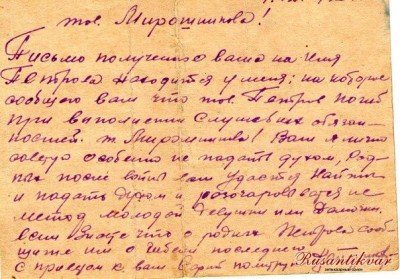 тов. Мирошникова!
Письмо полученно ваша на имя
Петрова находится у меня; на которое
сообщаю вам что тов. Петров погиб
при выполнении служебных обязан-
ностей. т. Мирошникова! Вам я лично
советую особенно не падать духом, Род-
ных после войны вам удастся найти
и падать духом и разочароваться не
метод молодой девушки или дамочки.
если знаете что о родных Петрова сооб-
щите им о гибели последнего
с приветом к вам в/рай политрук
Rusantikvar